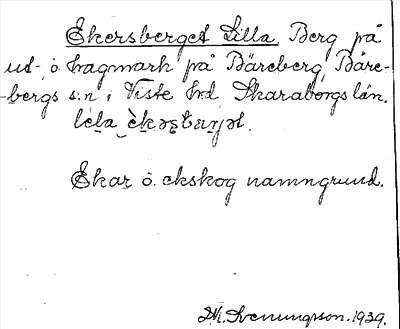 Ekersberget Lilla. Berg på
ut- o. hagmark på Bäreberg, Båre-
-bergs s:n i Viste hrd Skaraborgs län.
Ekar o. ekskog namngrund.
M. Svenungson. 1939.